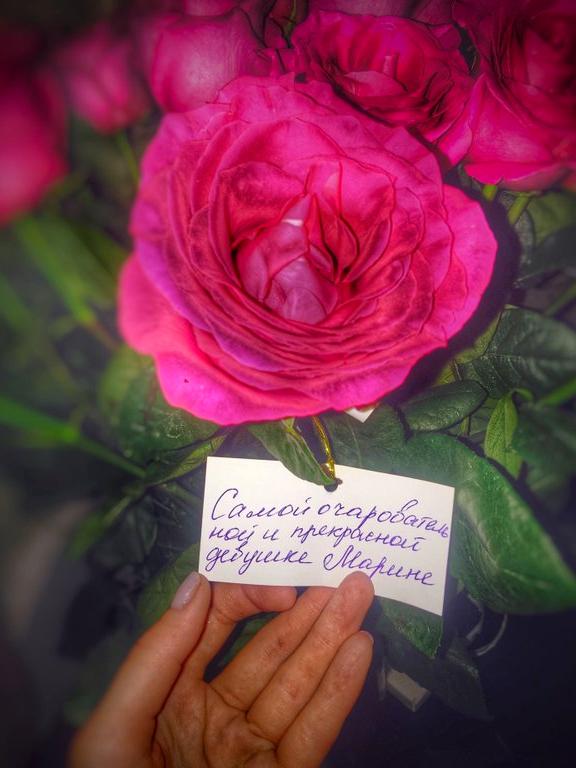 Самой очарователь
ной и прекрасной
девушке Марине